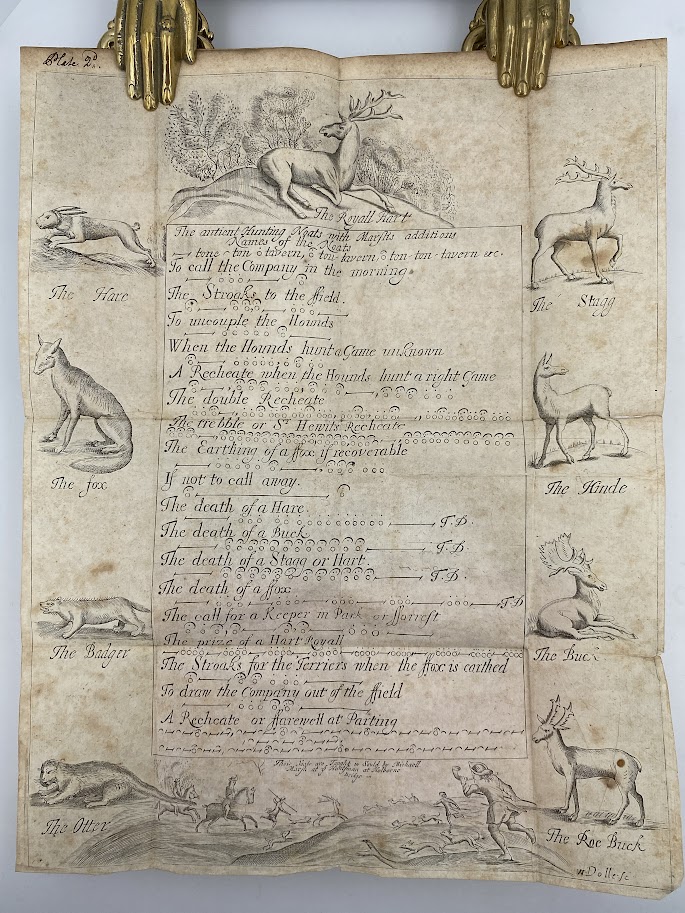 Plate 2d.
The Royall Hart
The antient Hunting Noats with Marshs additions
Names of the Noats
tone ton tavern, ton tavern, ton ton tavern &c.
To call the Company in the morning
The Stroaks to the ffield.
To uncouple the Hounds
When the Hounds hunt a Game unknown
A Recheate when the Hounds hunt a right Game
The double Recheate
The trebble or Sr Hewits Recheate
The Earthing of a ffox if recoverable
If not to call away.
The death of a Hare
T.D.
The death of a Buck
T.D.
The death of a Stagg or Hart.
T.D.
The death of a ffox
T.D
The call for a Keeper in Park or fforrest
The prize of a Hart Royall
The Stroaks for the Terriers when the ffox is earthed
To draw the Company out of the ffield
A Recheate or ffarewell at Parting
The Hare
The fox
The Badger
The Otter
The Stagg
The Hinde
The Buck
The Roe Buck
are Taught & Sould by Michaell
Marsh at
Dolle sc